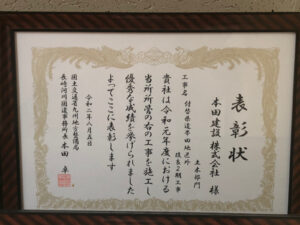 表彰状
土木部門
本田建設 株式会社 様
工事名
貴社は令和元年度における
当所所管の右の工事を施工し
優秀な成績を挙げられました
よってここに表彰します
令和二年八月五日
国土交通省九州地方整備局
長崎河川国道事務所長 本田 卓